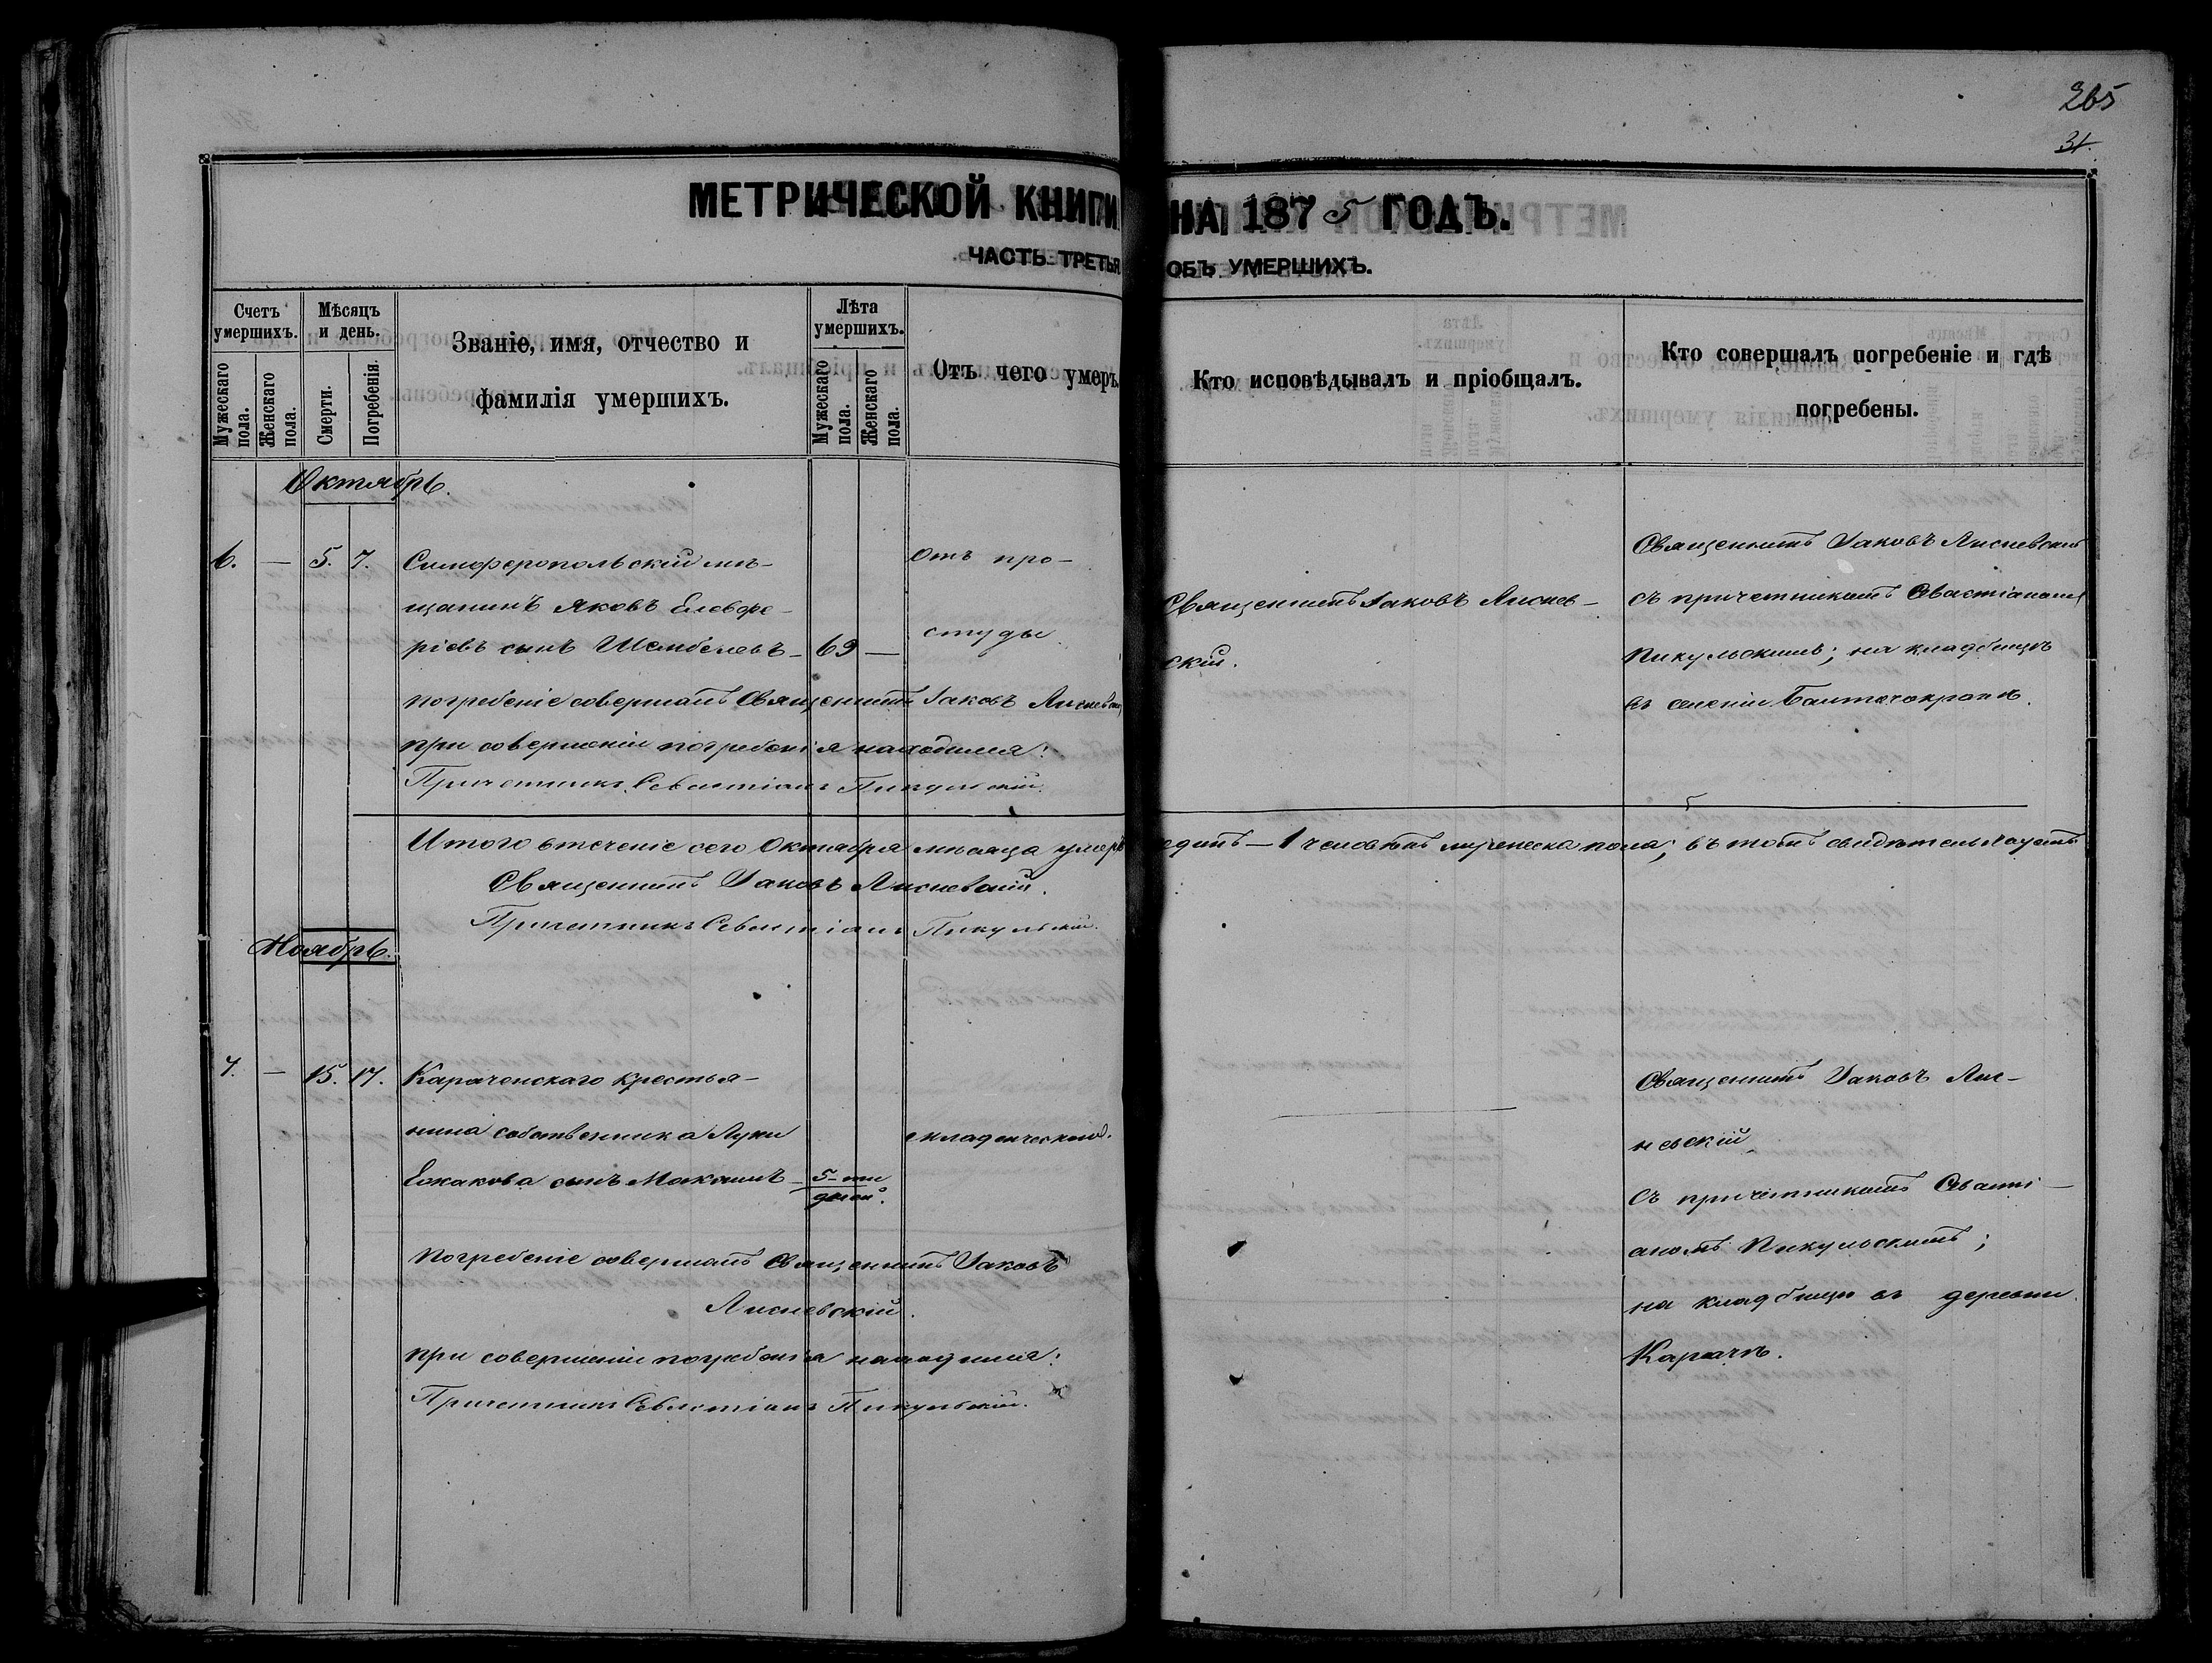 265
31.
МЕТРИЧЕСКОЙ КНИГИ НА 1875 ГОДЪ.
ЧАСТЬ ТРЕТЬЯ ОБЪ УМЕРШИХЪ.
Счетъ умершихъ.
Мужескаго пола.
Женскаго пола.
Мѣсяцъ и день.
Смерти.
Погребенія.
Званіе, имя, отчество и
фамилія умершихъ.
Лѣта умершихъ.
Мужескаго пола.
Женскаго пола.
Отъ чего умеръ.
Кто исповѣдывалъ и пріобщалъ.
Кто совершалъ погребеніе и гдѣ
погребены.
Октябрь.
6. — 5. 7. Симферопольскій мѣ-
щанинъ Яковъ Елевфе-
ріевъ сынъ — 69 —
отъ про-
студы
Священникъ Іаковъ Лиснев-
скій.
Священникъ Іаковъ Лисневскій
съ причетникомъ Севастіаномъ
Пикульскимъ; на кладбищѣ
въ селеніи
погребеніе совершалъ Священникъ Іаковъ Лисневскій
при совершеніи погребенія находился:
Причетникъ Севастіанъ Пикульскій.
Итого втеченіе сего Октября мѣсяца умеръ одинъ — 1 человѣкъ мужеска пола; въ томъ свидѣтельствуетъ
Священникъ Іаковъ Лисневскій.
Причетникъ Севастіанъ Пикульскій.
Ноябрь.
7. — 15. 17. Караченскаго крестья-
нина собственника Луки
сынъ Максимъ — 5-ти
дней.
младенческой.
Священникъ Іаковъ Лис-
невскій
съ причетникомъ Севасті-
аномъ Пикульскимъ;
на кладбищѣ въ деревни
Карачѣ.
Погребеніе совершалъ Священникъ Іаковъ
Лисневскій.
при совершеніи погребенія находился:
Причетникъ Севастіанъ Пикульскій.